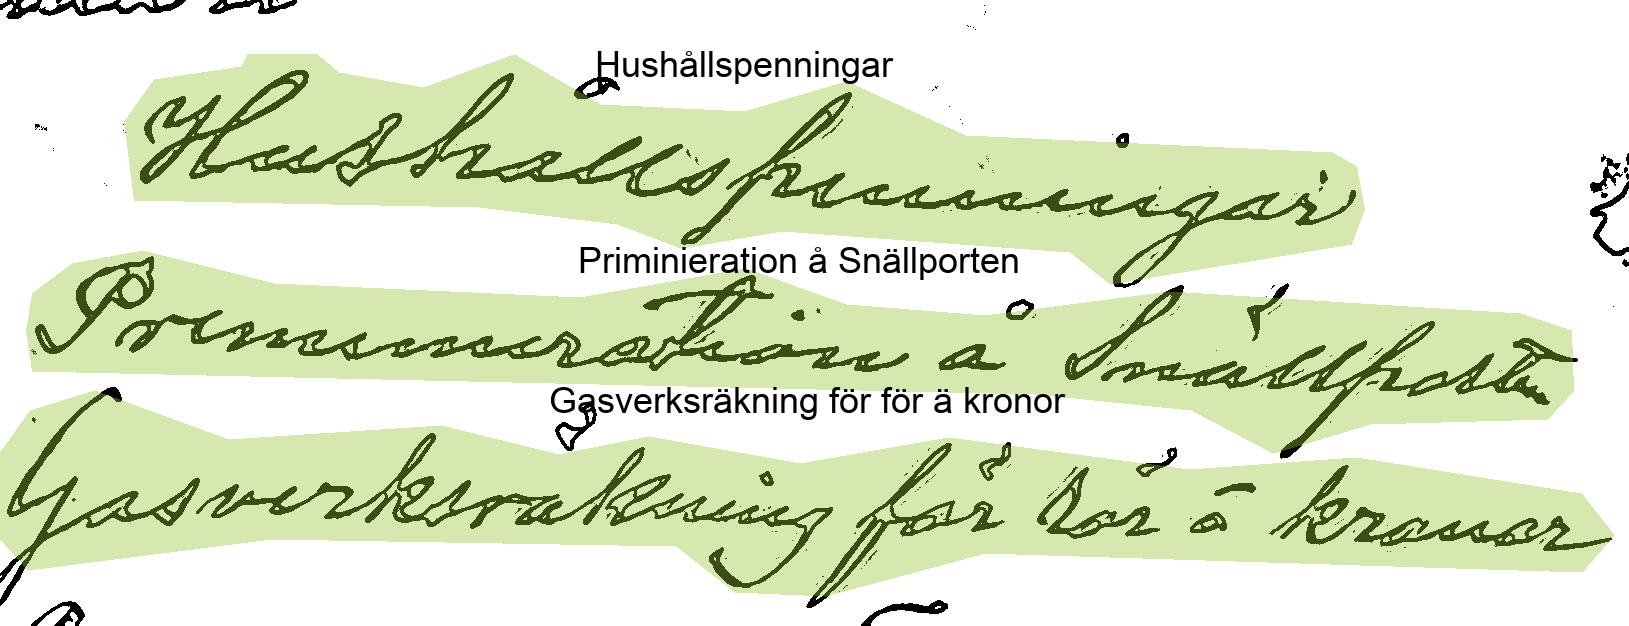 Hushållspenningar
Hushållspenningar
Priminieration å Snällporten
Prenumeration å Snällposten
Gasverksräkning för för ä kronor
Gasverksräkning för rör å kronor